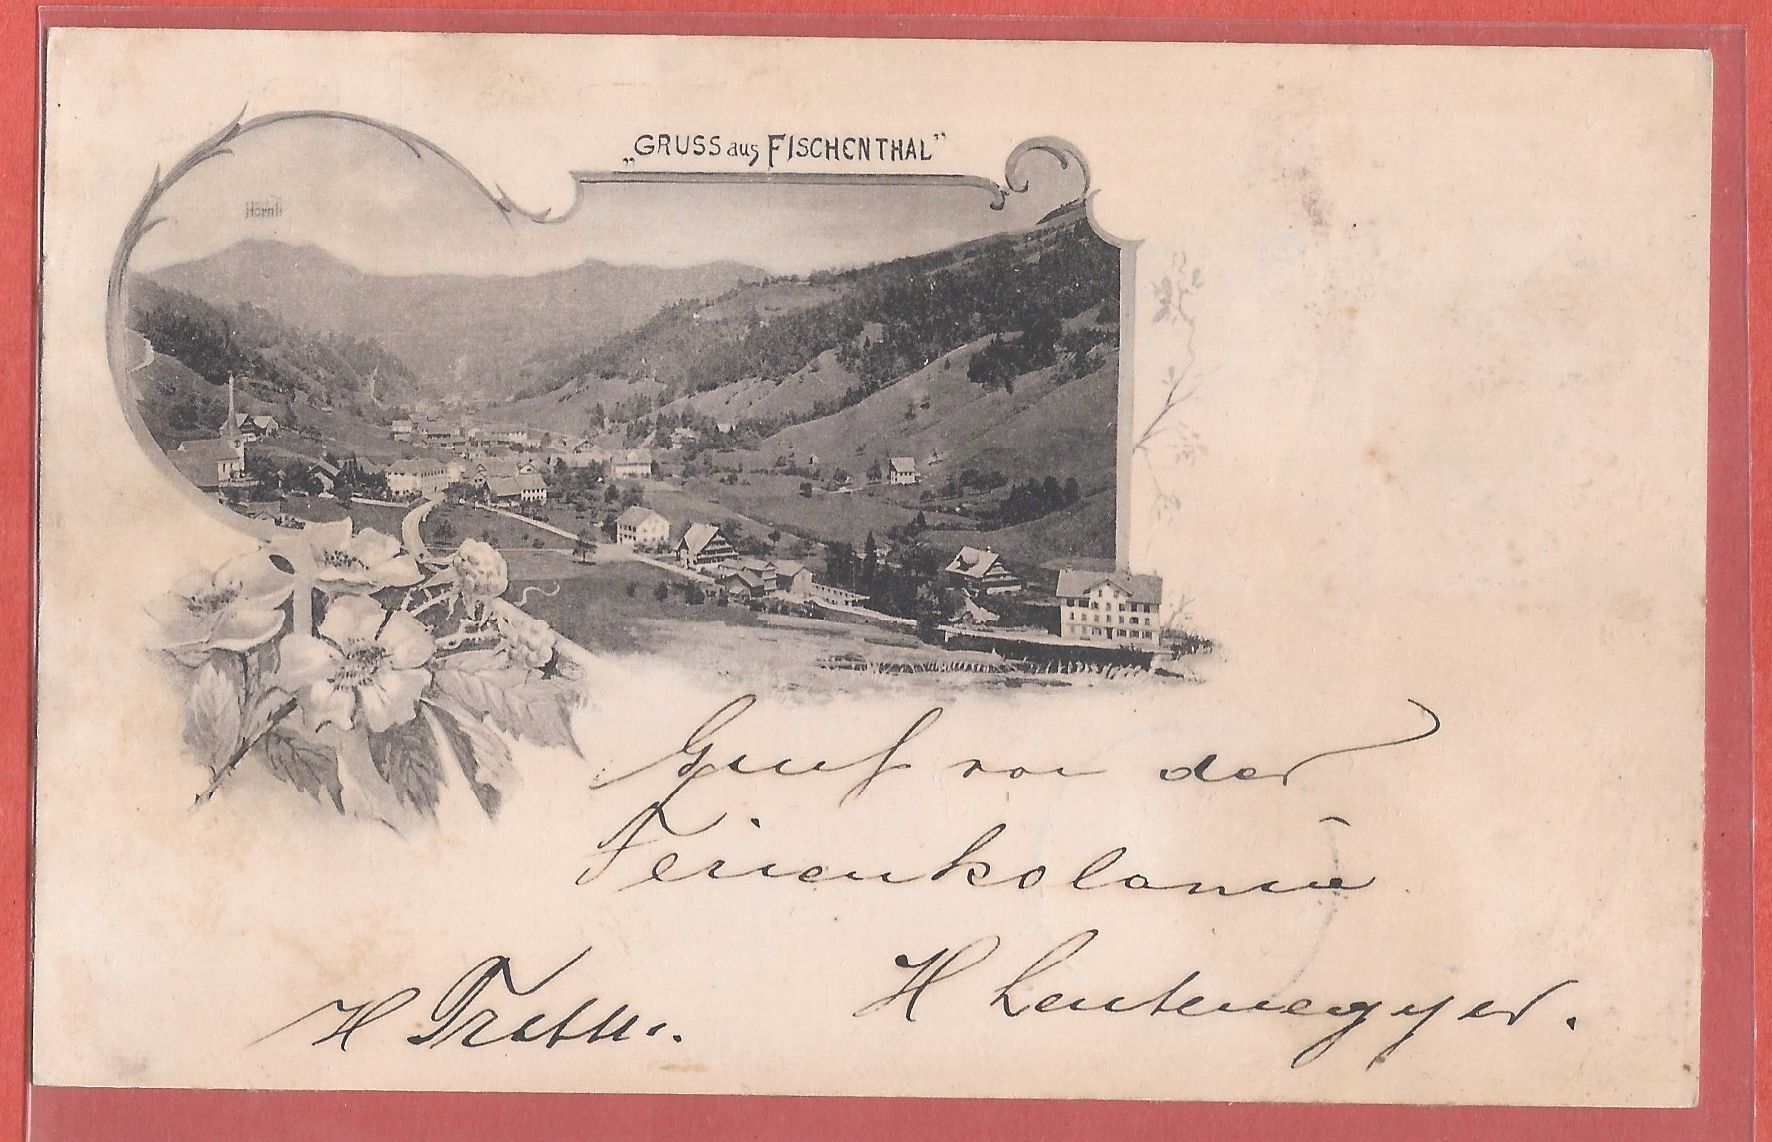 „GRUSS aus FISCHENTHAL"
Hörnli
Gruß von der
Ferienkolonie
H Leutenegger.
H